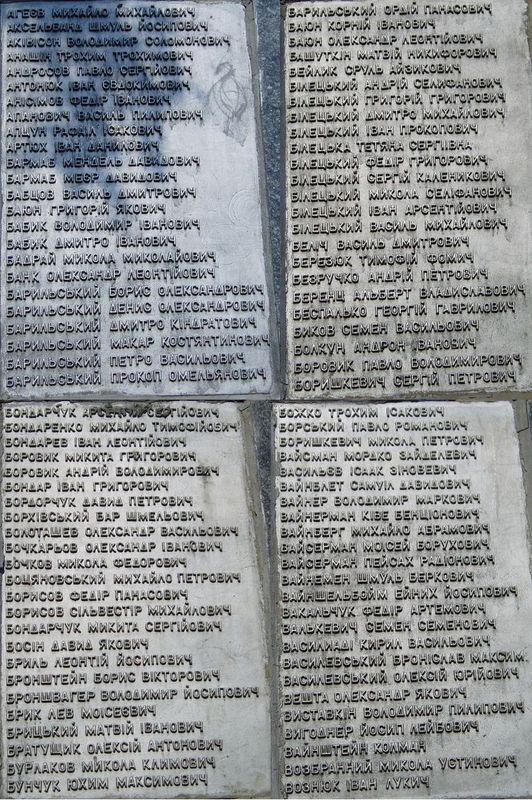 АГЕЄВ МИХАЙЛО МИХАЙЛОВИЧ
АКСЕЛЬБАНД ШМУЛЬ ЙОСИПОВИЧ
АКІВІСОН ВОЛОДИМИР СОЛОМОНОВИЧ
АНАШІН ТРОХИМ ТРОХИМОВИЧ
АНДРОСОВ ПАВЛО СЕРГІЙОВИЧ
АНТОНЮК ІВАН ЄВДОКИМОВИЧ
АНІСІМОВ ФЕДІР ІВАНОВИЧ
АПАНОВИЧ ВАСИЛЬ ПИЛИПОВИЧ
АПЦУН РАФАІЛ ІСАКОВИЧ
АРТЮХ ІВАН ДАНИЛОВИЧ
БАРМАБ МЕНДЕЛЬ ДАВИДОВИЧ
БАРМАБ МЕЄР ДАВИДОВИЧ
БАБЦОВ ВАСИЛЬ ДМИТРОВИЧ
БАЮН ГРИГОРІЙ ЯКОВИЧ
БАБИК ВОЛОДИМИР ІВАНОВИЧ
БАБИК ДМИТРО ІВАНОВИЧ
БАДРАЙ МИКОЛА МИКОЛАЙОВИЧ
БАНК ОЛЕКСАНДР ЛЕОНТІЙОВИЧ
БАРИЛЬСЬКИЙ БОРИС ОЛЕКСАНДРОВИЧ
БАРИЛЬСЬКИЙ ДЕНИС ОЛЕКСАНДРОВИЧ
БАРИЛЬСЬКИЙ ДМИТРО КІНДРАТОВИЧ
БАРИЛЬСЬКИЙ МАКАР КОСТЯНТИНОВИЧ
БАРИЛЬСЬКИЙ ПЕТРО ВАСИЛЬОВИЧ
БАРИЛЬСЬКИЙ ПРОКОП ОМЕЛЬЯНОВИЧ
БАРИЛЬСЬКИЙ ОРДІЙ ПАНАСОВИЧ
БАЮН КОРНІЙ ІВАНОВИЧ
БАЮН ОЛЕКСАНДР ЛЕОНТІЙОВИЧ
БАШУТКІН МАТВІЙ НИКИФОРОВИЧ
БЕЙЛИК СРУЛЬ АЙЗИКОВИЧ
БІЛЕЦЬКИЙ АНДРІЙ СЕЛИФАНОВИЧ
БІЛЕЦЬКИЙ ГРИГОРІЙ ГРИГОРОВИЧ
БІЛЕЦЬКИЙ ДМИТРО МИХАЙЛОВИЧ
БІЛЕЦЬКИЙ ІВАН ПРОКОПОВИЧ
БІЛЕЦЬКА ТЕТЯНА СЕРГІЇВНА
БІЛЕЦЬКИЙ ФЕДІР ГРИГОРОВИЧ
БІЛЕЦЬКИЙ СЕРГІЙ ХАЛЕНИКОВИЧ
БІЛЕЦЬКИЙ МИКОЛА СЕЛІФАНОВИЧ
БІЛЕЦЬКИЙ ІВАН АРСЕНТІЙОВИЧ
БІЛЕЦЬКИЙ ВАСИЛЬ МИХАЙЛОВИЧ
БЕЛІЧ ВАСИЛЬ ДМИТРОВИЧ
БЕРЕЗЮК ТИМОФІЙ ФОМИЧ
БЕЗРУЧКО АНДРІЙ ПЕТРОВИЧ
БЕРЕНЦ АЛЬБЕРТ ВЛАДИСЛАВОВИЧ
БЕСПАЛЬКО ГЕОРГІЙ ГАВРИЛОВИЧ
БИКОВ СЕМЕН ВАСИЛЬОВИЧ
БОЛКУН АНДРОН ІВАНОВИЧ
БОРОВИК ПАВЛО ВОЛОДИМИРОВИЧ
БОРИШКЕВИЧ СЕРГІЙ ПЕТРОВИЧ
БОНДАРЧУК АРСЕНТІЙ СЕРГІЙОВИЧ
БОНДАРЕНКО МИХАЙЛО ТИМОФІЙОВИЧ
БОНДАРЕВ ІВАН ЛЕОНТІЙОВИЧ
БОРОВИК МИКИТА ГРИГОРОВИЧ
БОРОВИК АНДРІЙ ВОЛОДИМИРОВИЧ
БОНДАР ІВАН ГРИГОРОВИЧ
БОРДОРЧУК ДАВИД ПЕТРОВИЧ
БОРХІВСЬКИЙ БАР ШМЕЛЬОВИЧ
БОЛОТАШЕВ ОЛЕКСАНДР ВАСИЛЬОВИЧ
БОЧКАРЬОВ ОЛЕКСАНДР ІВАНОВИЧ
БОЧКОВ МИКОЛА ФЕДОРОВИЧ
БОЦЯНОВСЬКИЙ МИХАЙЛО ПЕТРОВИЧ
БОРИСОВ ФЕДІР ПАНАСОВИЧ
БОРИСОВ СІЛЬВЕСТІР МИХАЙЛОВИЧ
БОНДАРЧУК МИКИТА СЕРГІЙОВИЧ
БОСІН ДАВИД ЯКОВИЧ
БРИЛЬ ЛЕОНТІЙ ЙОСИПОВИЧ
БРОНШТЕЙН БОРИС ВІКТОРОВИЧ
БРОНШВАГЕР ВОЛОДИМИР ЙОСИПОВИЧ
БРИК ЛЕВ МОІСЕЄВИЧ
БРИЦЬКИЙ МАТВІЙ ІВАНОВИЧ
БРАТУЩИК ОЛЕКСІЙ АНТОНОВИЧ
БУРЛАКОВ МИКОЛА КЛИМОВИЧ
БУНЧУК ЮХИМ МАКСИМОВИЧ
БОЖКО ТРОХИМ ІСАКОВИЧ
БОРСЬКИЙ ПАВЛО РОМАНОВИЧ
БОРИШКЕВИЧ МИКОЛА ПЕТРОВИЧ
ВАЙСМАН МОРДКО ЗАЙДЕЛЕВИЧ
ВАСИЛЬЄВ ІСААК ЗІНОВЕВИЧ
ВАЙНБЛЕТ САМУІЛ ДАВИДОВИЧ
ВАЙНЕР ВОЛОДИМИР МАРКОВИЧ
ВАЙНЕРМАН КІВЕ БЕНЦІОНОВИЧ
ВАЙНБЕРГ МИХАЙЛО АБРАМОВИЧ
ВАЙСЕРМАН МОІСЕЙ БОРУХОВИЧ
ВАЙСЕРМАН ПЕЙСАХ РАДІОНОВИЧ
ВАЙНЕМЕН ШМУЛЬ БЕРКОВИЧ
ВАЙНШЕЛЬБОЙМ ЕЙНИХ ЙОСИПОВИЧ
ВАКАЛЬЧУК ФЕДІР АРТЕМОВИЧ
ВАЛЬКЕВИЧ СЕМЕН СЕМЕНОВИЧ
ВАСИЛИАДІ КИРИЛ ВАСИЛЬОВИЧ
ВАСИЛЕВСЬКИЙ БРОНІСЛАВ МАКСИМ.
ВАСИЛЕВСЬКИЙ ОЛЕКСІЙ ЮРІЙОВИЧ
ВЕШТА ОЛЕКСАНДР ЯКОВИЧ
ВИСТАВКІН ВОЛОДИМИР ПИЛИПОВИЧ
ВИГОДНЕР ЙОСИП ЛЕЙБОВИЧ
ВАЙНШТЕЙН КОЛМАН
ВОЗБРАННИЙ МИКОЛА УСТИНОВИЧ
ВОЗНЮК ІВАН ЛУКИЧ